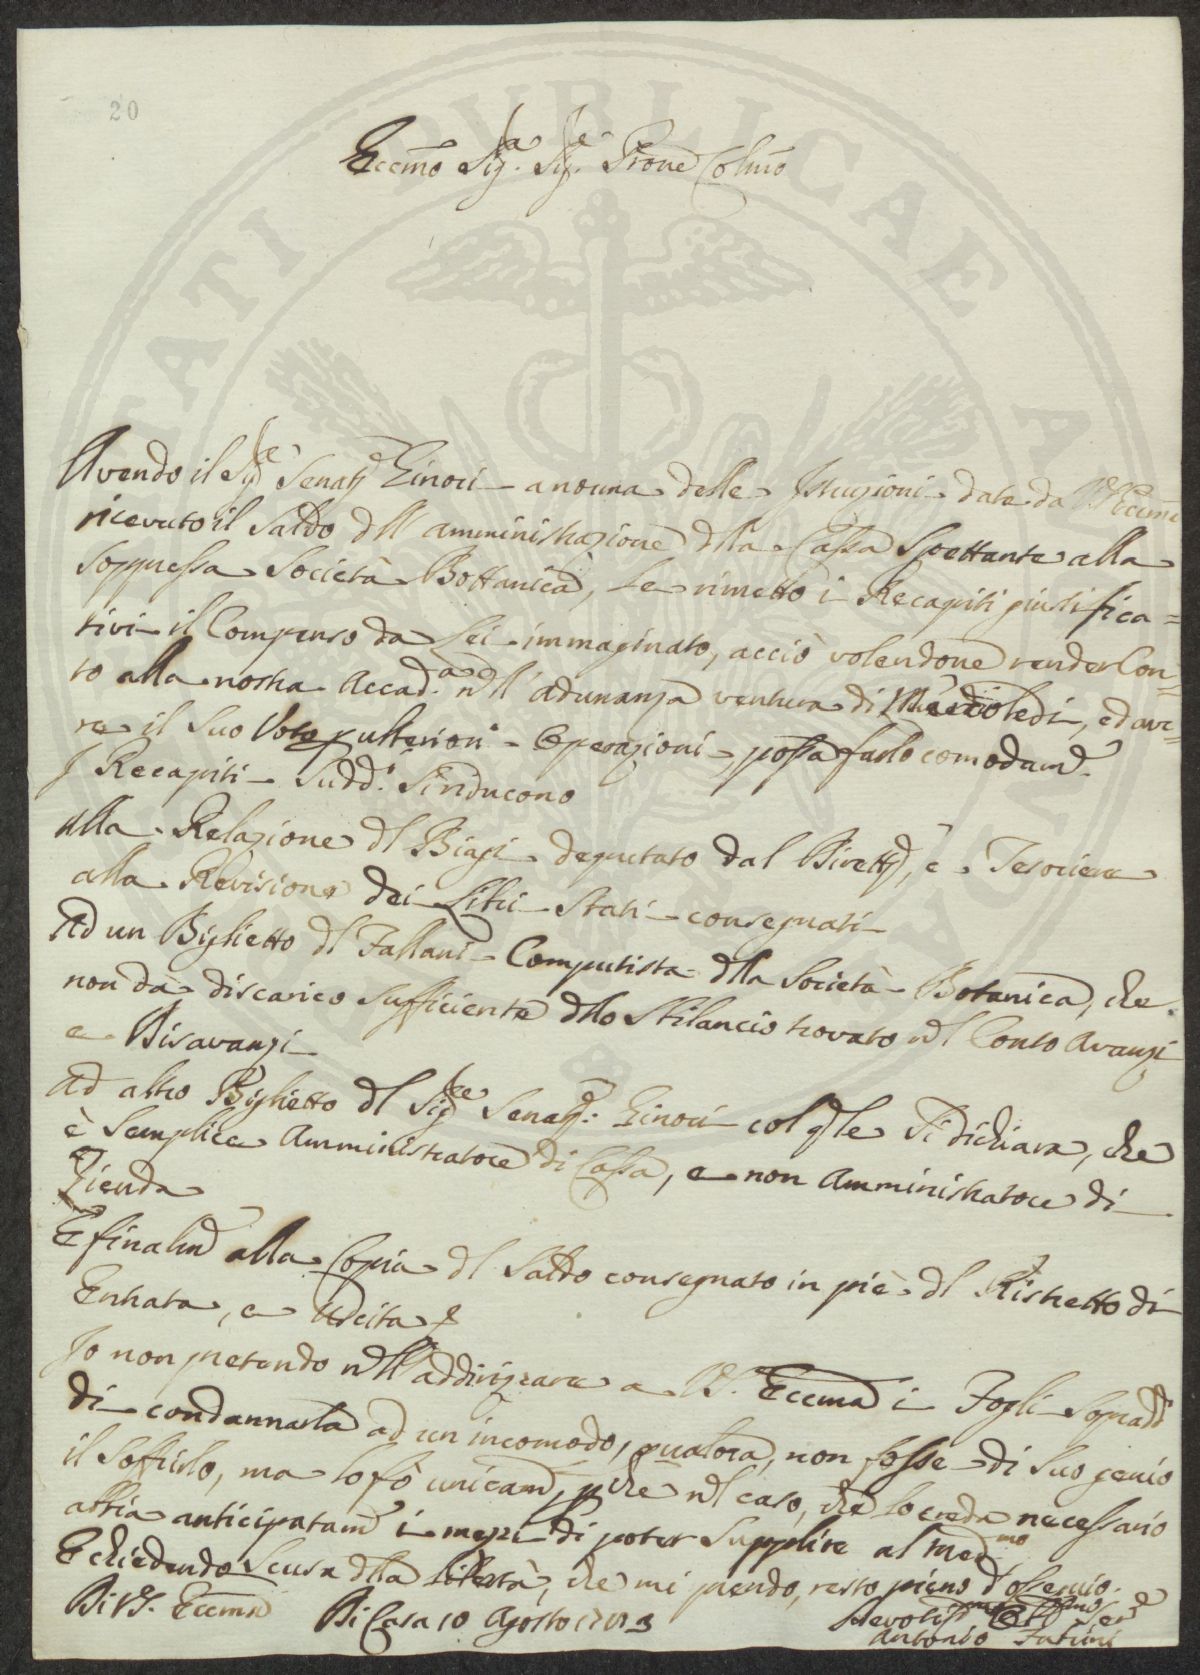 20
Eccmo Sig.a Sig.e Prone Colmo
Avendo il Sig.e Senat.e Ginori a norma delle Istruzioni date da V. Eccma
ricevuto il Saldo dell' amministrazione dlla Cassa Spettante alla
Soppressa Società Bottanica, Le rimetto i Recapiti giustifica=
tivi il Compenso da Lei immaginato, acciò volendone render Con=
to alla nostra Accad.a nell' adunanza ventura di Mercoledì, ed ave=
re il suo Voto p ulteriori Operazioni possa farlo comodam.e
I Recapiti Sudd.i Si riducono
Alla Relazione dl Biagi deputato dal Dirett.e, e Tesoriere
alla Revisione dei Libri Stati consegnati
Ad un Biglietto dl Fallani Computista dlla Società Botanica, che
non dà discarico sufficiente dllo Stilancio trovato nel Conto Avanzi
e Disavanzi
Ad altro Biglietto dl Sig.e Senat.e Ginori col qle Si dichiara, che
è Semplice Amministratore di Cassa, e non Amministratore di
Azienda
E finalm.e alla Copia dl Saldo consegnato in piè dl Ristretto di
Entrata, e Uscita
Io non pretendo nell' addirizzare a V. Eccma i Fogli Sopradd.i
di condannarla ad un incomodo, qualora non fosse di Suo genio
il Soffrirlo, ma lo fò unicam.e pchè nel caso, che lo creda necessario
abbia anticipatam.e i mezzi di poter Supplire al med.mo
E chiedendo Scusa dlla libertà, che mi prendo, resto pieno d'ossequio
Di V.S. Eccma Di Casa 10 Agosto 1783
Antonio